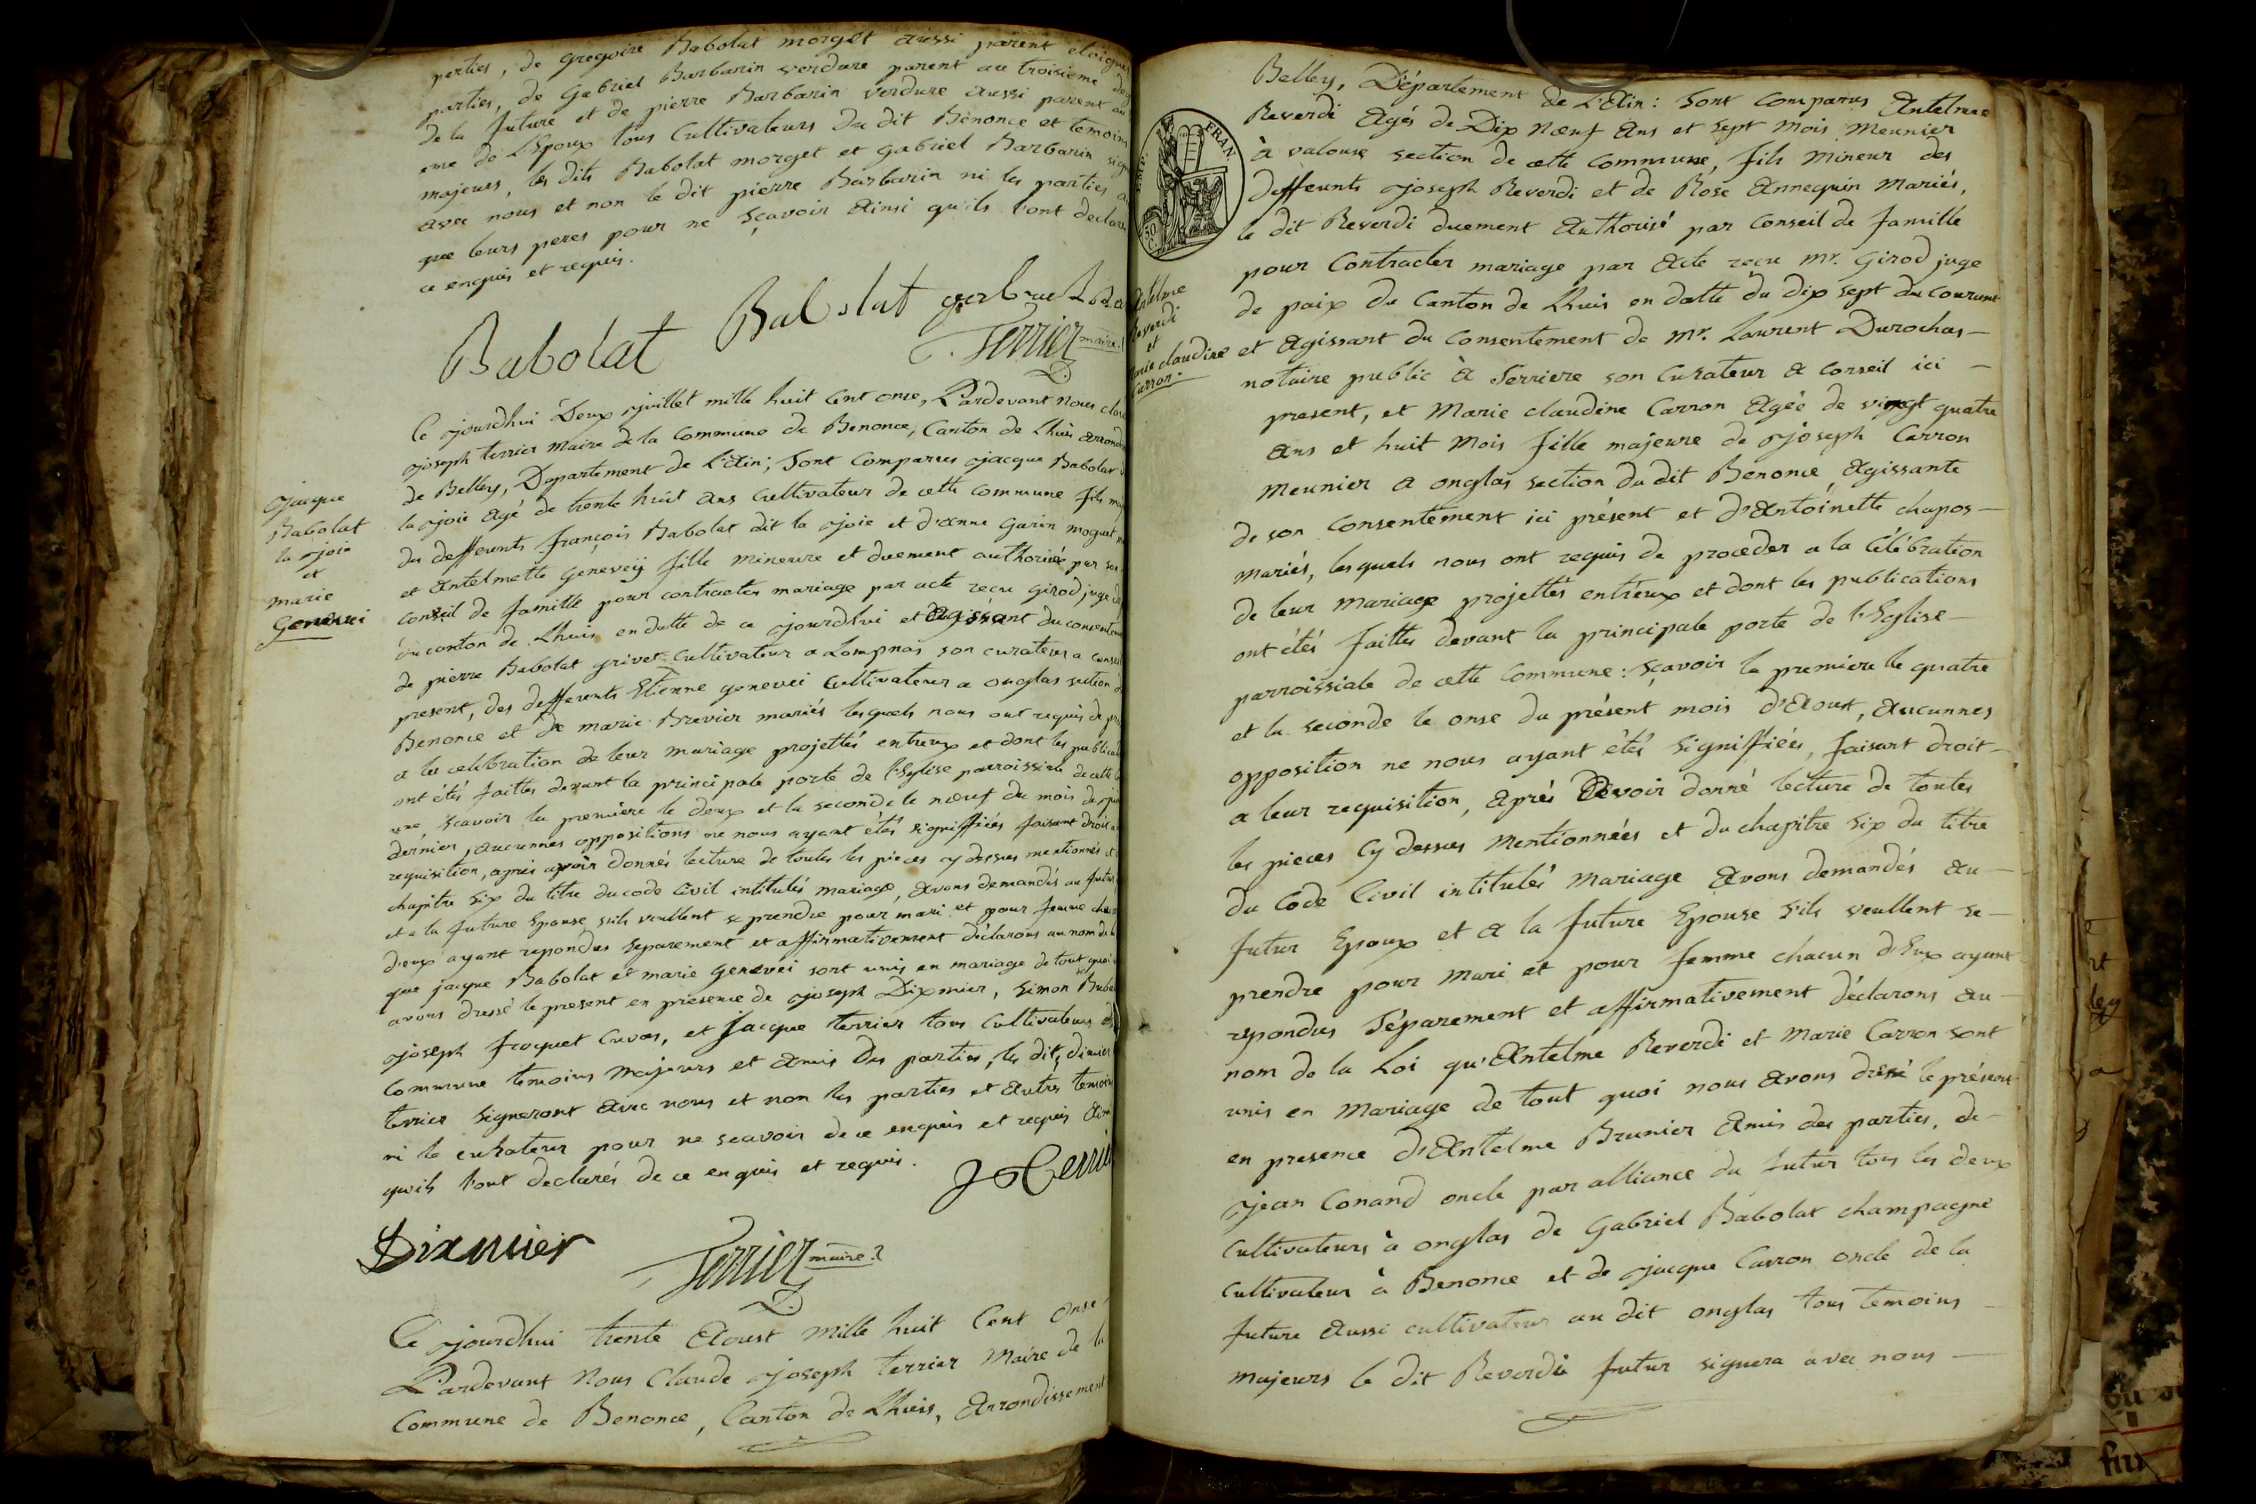 parties, de gregoire Babolat morget aussi parent eloigné
parties, de Gabriel Barbarin verdure parent au troisieme
de la future et de pierre Barbarin verdure aussi parent au
eme de L'Epoux tous Cultivateurs du dit Bénonce et temoins
majeurs, les dits Babolat morget et gabriel Barbarin
avec nous et non le dit pierre Barbarin ni les parties
que leurs peres pour ne sçavoir ainsi qu'ils l'ont declaré
ce enquis et requis.
Babolat Babolat
Terrier maire
Ce jourdhui Deux juillet mille huit Cent onze, Pardevant Nous
joseph terrier Maire de la Commune de Benonce, Canton de Lhuis
de Belley, Departement de L'Ain; Sont Comparus jacque Babolat
la joie Agé de trente huit ans Cultivateur de cette Commune fils
des deffunts françois Babolat dit la joie et d'anne Garin
et Antelmette Genevey fille Mineure et duement authorisée par son
Conseil de famille pour contracter mariage par acte recu Girod, juge
du canton de Lhuis en datte de ce jourdhui et Agissant du
de pierre Babolat grivet Cultivateur a Lompnas son curateur a
present, des deffunts Etienne genevei Cultivateur a onglas section
Benonce et de marie Brevier mariés lesquels nous ont requis de
a la celebration de leur mariage projettés entreux et dont les
ont étés faittes devant la principale porte de l'Eglise parroissiale de cette
une, scavoir la premiere le deux et la seconde le nœuf du mois de
dernier, aucunnes oppositions ne nous ayant étés signiffiées faisant droit
requisition, apres avoir donnés lecture de toutes les pieces cy dessus mentionnés
chapitre six du titre du code Civil intitulés mariage, avons demandés au futur
et a la future Epouse s'ils veullent se prendre pour mari et pour femme
d'eux ayant repondus Separement et affirmativement déclarons au nom de
que jacque Babolat et marie genevei sont unis en mariage de tout quoi
avons dressé le present en presence de joseph Dixmier, Simon
joseph Cuvas, et jacque terrier tous Cultivateurs
Commune temoins Majeurs et Amis des parties, les dits,
terrier signeront avec nous et non les parties et Autres temoins
ni le curateur pour ne scavoir de ce enquis et requis
qu'ils l'ont declarés de ce enquis et requis.
Dixmier Terrier maire
jacque
Babolat
la joie
et
marie
Genevei
Ce jourdhui trente Aoust Mille huit Cent Onze
Pardevant Nous Claude joseph terrier Maire de la
Commune de Benonce, Canton de Lhuis, Arrondissement
Belley, Département de L'Ain: Sont Comparus Antelme
Reverdi Agés de Dix Nœuf Ans et Sept Mois Meunier
à valouse section de cette Commune, fils Mineur des
deffunts joseph Reverdi et de Rose Annequin Mariés,
le dit Reverdi duement Authorisé par Conseil de famille
pour Contracter mariage par Acte recu Mr. Girod juge
de paix du Canton de Lhuis en datte du Dix Sept du Courant
et Agissant du Consentement de Mr. Laurent Durochas
notaire public à Serriere son Curateur a conseil ici
present, et Marie claudine Carron Agée de vingt quatre
Ans et huit Mois fille majeure de joseph Carron
Meunier a onglas section du dit Benonce, Agissante
de son Consentement ici présent et d'Antoinette chapos
mariés, lesquels nous ont requis de proceder a la Célébration
de leur Mariage projettés entreux et dont les publications
ont étés faittes devant la principale porte de l'Eglise
parroissiale de cette Commune: sçavoir la premiere le quatre
et la seconde le onse du présent mois d'Aoust, aucunnes
opposition ne nous ayant étés Signiffiées, faisant droit
a leur requisition, Aprés avoir donné lecture de toutes
les pieces Cy dessus Mentionnées et du chapitre Six du titre
du Code Civil intitulés Mariage avons demandés au
futur Epoux et a la future Epouse s'ils veullent se
prendre pour Mari et pour femme chacun d'Eux ayant
repondus Séparement et affirmativement déclarons au
nom de la Loi qu'Antelme Reverdi et Marie Carron sont
unis en Mariage de tout quoi nous avons dressé le présent
en presence d'Antelme Brunier Amis des parties, de
jean Conand oncle par alliance du futur tous les deux
Cultivateurs à onglas de Gabriel Babolat champagne
Cultivateur à Benonce et de jacque Carron oncle de la
future Aussi cultivateur au dit onglas tous temoins
majeurs le dit Reverdi futur signera avec nous
FRAN
et
claudine